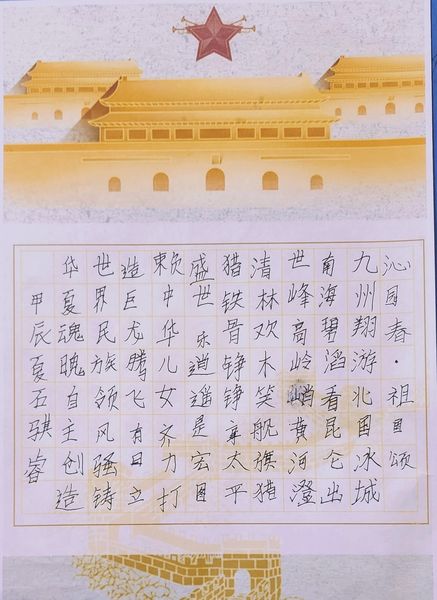 沁园春·祖国颂
九州翔游北国冰城
南海碧滔看昆仑出
世峰高岭峭黄河澄
清林欢木笑舰旗猎
猎铁骨铮铮享太平
盛世乐逍遥是宏图
赖中华儿女齐力打
造巨龙腾飞有日立
世界民族领风骚铸
华夏魂魄自主创造
甲辰夏石骐睿